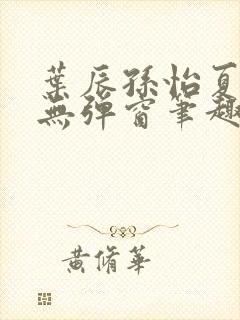 葉辰孫怡夏
無彈窗筆趣
黃脩華